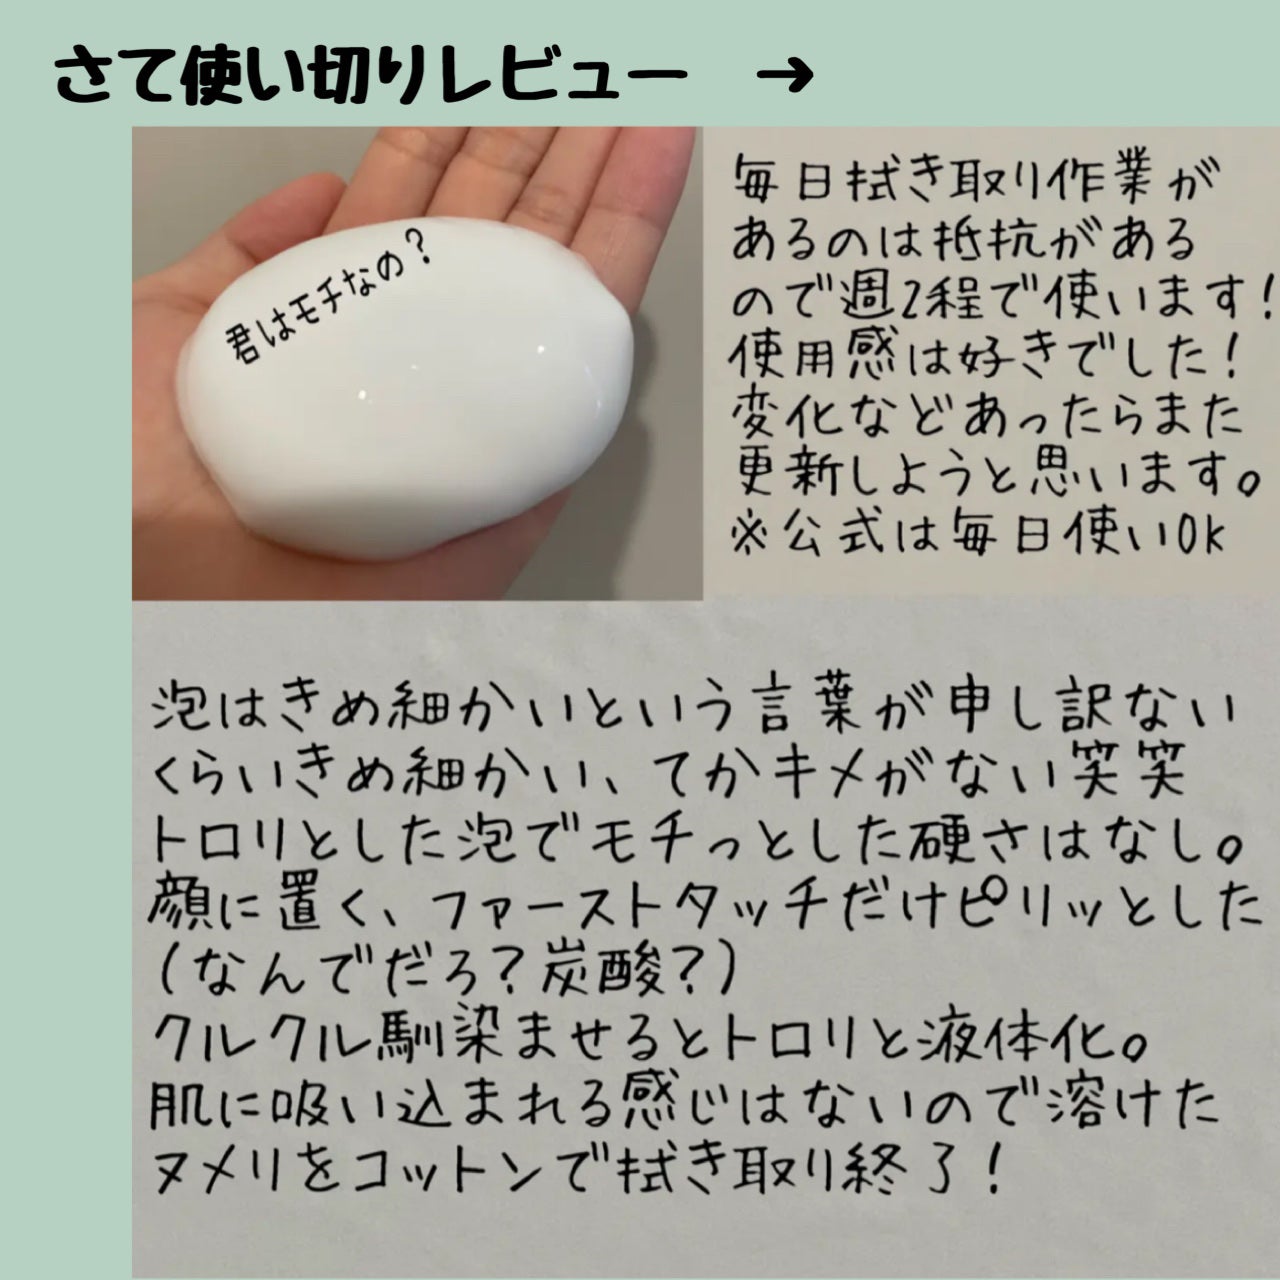 さて使い切りレビュー →
君はモチなの？
毎日拭き取り作業が
あるのは抵抗がある
ので週2程で使います！
使用感は好きでした！
変化などあったらまた
更新しようと思います。
※公式は毎日使いOK
泡はきめ細かいという言葉が申し訳ない
くらいきめ細かい、てかキメがない笑笑
トロリとした泡でモチっとした硬さはなし。
顔に置く、ファーストタッチだけピリッとした
（なんでだろ？炭酸？）
クルクル馴染ませるとトロリと液体化。
肌に吸い込まれる感じはないので溶けた
ヌメリをコットンで拭き取り終了！